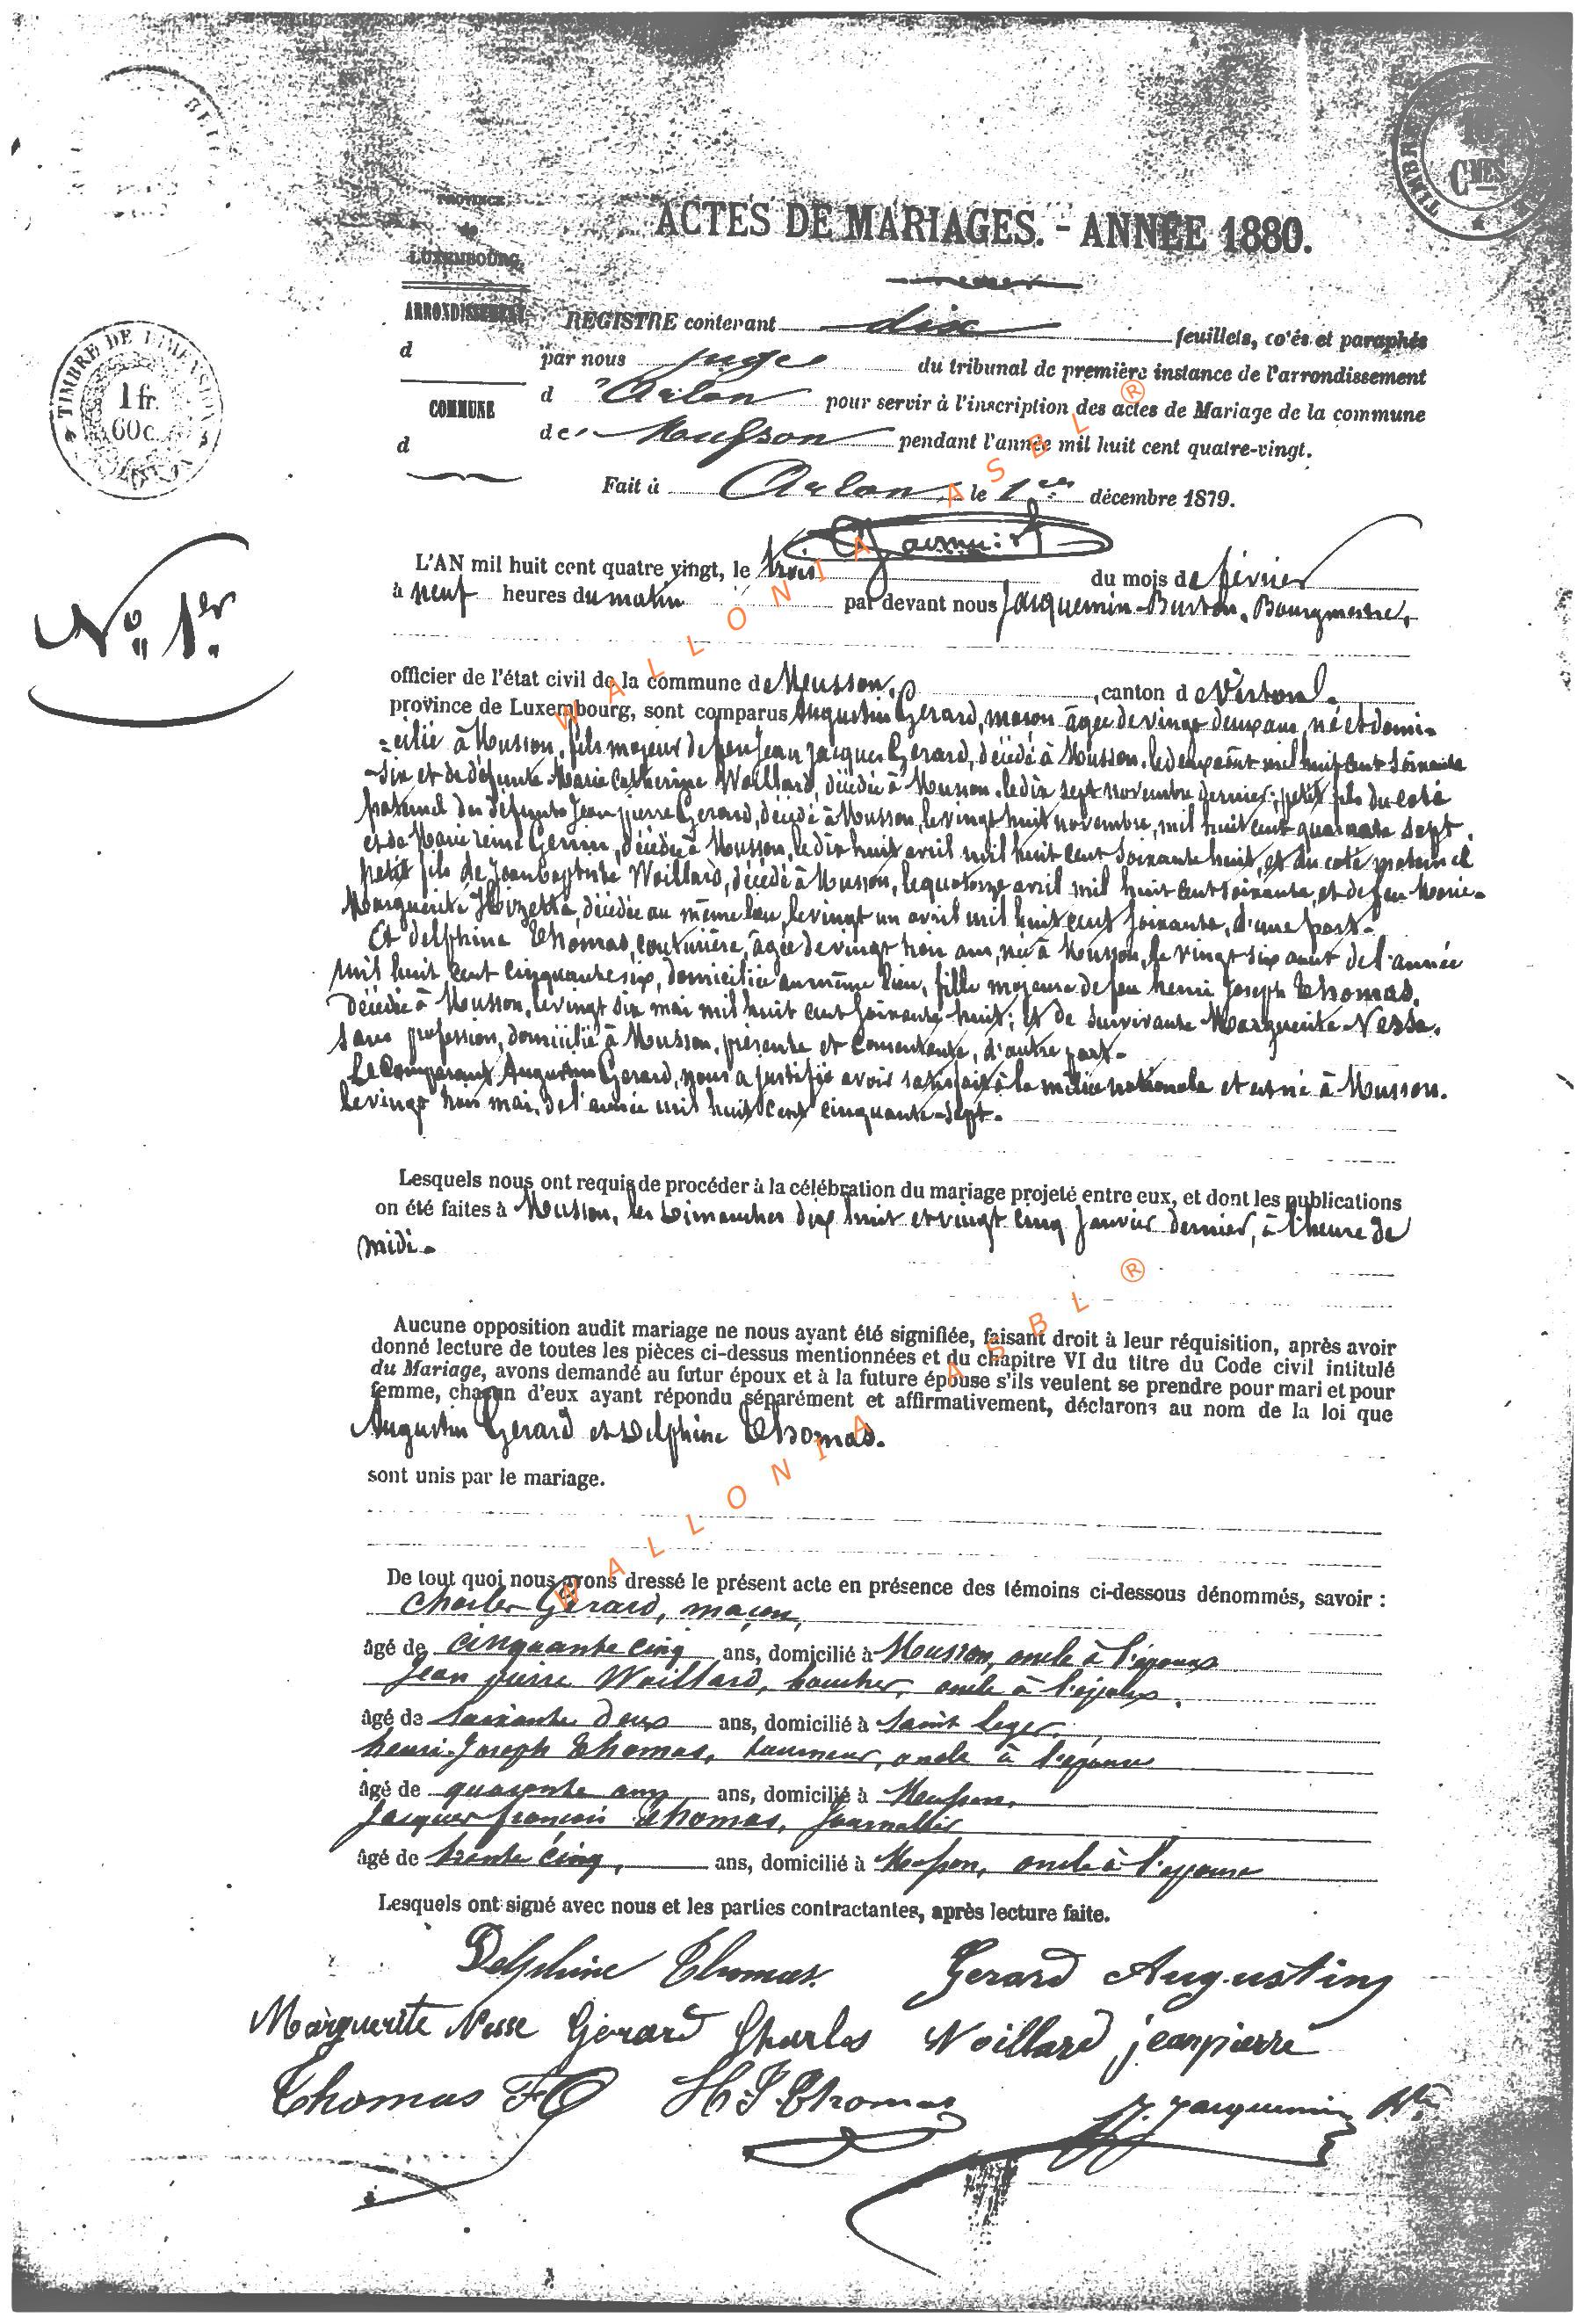 PROVINCE
de
LUXEMBOURG
ARRONDISSEMENT
d
COMMUNE
d
TIMBRE DE DIMENSION
1 fr.
60c.
TIMBRE
Cmes
ACTES DE MARIAGES. - ANNÉE 1880.
REGISTRE contenant dix feuillets, cotés et paraphés
par nous juge du tribunal de première instance de l'arrondissement
d'Arlon pour servir à l'inscription des actes de Mariage de la commune
de Musson pendant l'année mil huit cent quatre-vingt.
Fait à Arlon, le 1er décembre 1879.
No 1er
L'AN mil huit cent quatre vingt, le trois du mois de février
à neuf heures du matin par devant nous Jacquemin-Burton, Bourgmestre,
officier de l'état civil de la commune de Musson, canton de Virton,
province de Luxembourg, sont comparus Augustin Gerard, maçon âgée de vingt deux ans, né et domi-
-cilié à Musson, fils majeur de feu Jean Jacques Gerard, décédé à Musson, le deux août mil huit cent soixante
-six et de défunte Marie Catherine Woillard, décédée à Musson, le dix sept novembre dernier; petit fils du coté
paternel des défunts Jean pierre Gerard, décédé à Musson, le vingt huit novembre, mil huit cent quarante sept,
et de Marie reine Gerin, décédée à Musson, le dix huit avril mil huit cent soixante huit, et du coté maternel
petit fils de Jean baptiste Woillard, décédé à Musson, le quatorze avril mil huit cent soixante, et de feu Marie-
Marguerite Hizette, décédée au même lieu, le vingt un avril mil huit cent soixante, d'une part.
Et delphine Thomas, couturière, âgée de vingt trois ans, née à Musson, le vingt six août de l'année
mil huit cent cinquante six, domiciliée au même lieu, fille majeure de feu henri Joseph Thomas,
décédé à Musson, le vingt six mai mil huit cent soixante huit; et de survivante Marguerite Nesse,
sans profession, domiciliée à Musson, présente et consentante, d'autre part.
Le comparant Augustin Gerard, nous a justifié avoir satisfait à la milice nationale et est né à Musson,
le vingt trois mai, de l'année mil huit cent cinquante-sept.
Lesquels nous ont requis de procéder à la célébration du mariage projeté entre eux, et dont les publications
on été faites à Musson, les Dimanches dix huit et vingt cinq Janvier dernier, à l'heure de
midi.
Aucune opposition audit mariage ne nous ayant été signifiée, faisant droit à leur réquisition, après avoir
donné lecture de toutes les pièces ci-dessus mentionnées et du chapitre VI du titre du Code civil intitulé
du Mariage, avons demandé au futur époux et à la future épouse s'ils veulent se prendre pour mari et pour
femme, chacun d'eux ayant répondu séparément et affirmativement, déclarons au nom de la loi que
Augustin Gerard et Delphine Thomas.
sont unis par le mariage.
De tout quoi nous avons dressé le présent acte en présence des témoins ci-dessous dénommés, savoir :
Charles Gérard, maçon,
âgé de cinquante cinq ans, domicilié à Musson, oncle à l'époux
Jean pierre Woillard, boucher, oncle à l'époux.
âgé de soixante deux ans, domicilié à Saint Leger,
henri-Joseph Thomas, tourneur, oncle à l'épouse
âgé de quarante ans ans, domicilié à Musson,
Jacques françois Thomas, Journalier
âgé de trente cinq, ans, domicilié à Musson, oncle à l'épouse
Lesquels ont signé avec nous et les parties contractantes, après lecture faite.
Delphine Thomas. Gerard Augustin
Marguerite Nesse Gérard Charles Woillard jeanpierre
Thomas F H J. Thomas J. Jacquemin
WALLONIA ASBL ®
WALLONIA ASBL ®